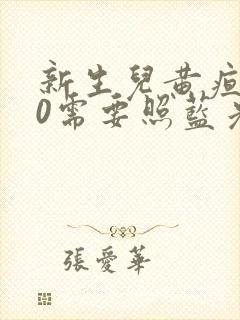 新生兒黃疸
0需要照藍光
張愛華